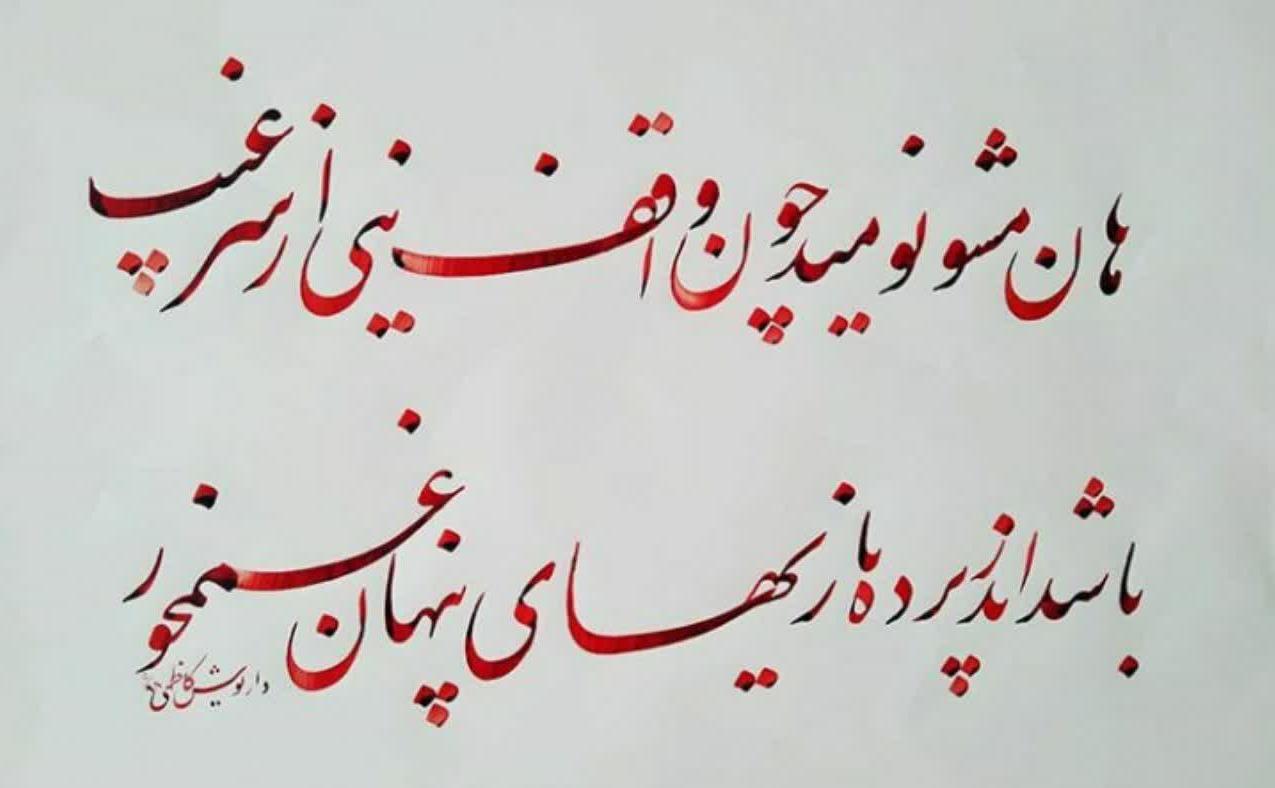 هان مشو نومید چون واقف نیی از سر غیب
باشد اندر پرده بازیهای پنهان غم مخور
داریوش کاظمی